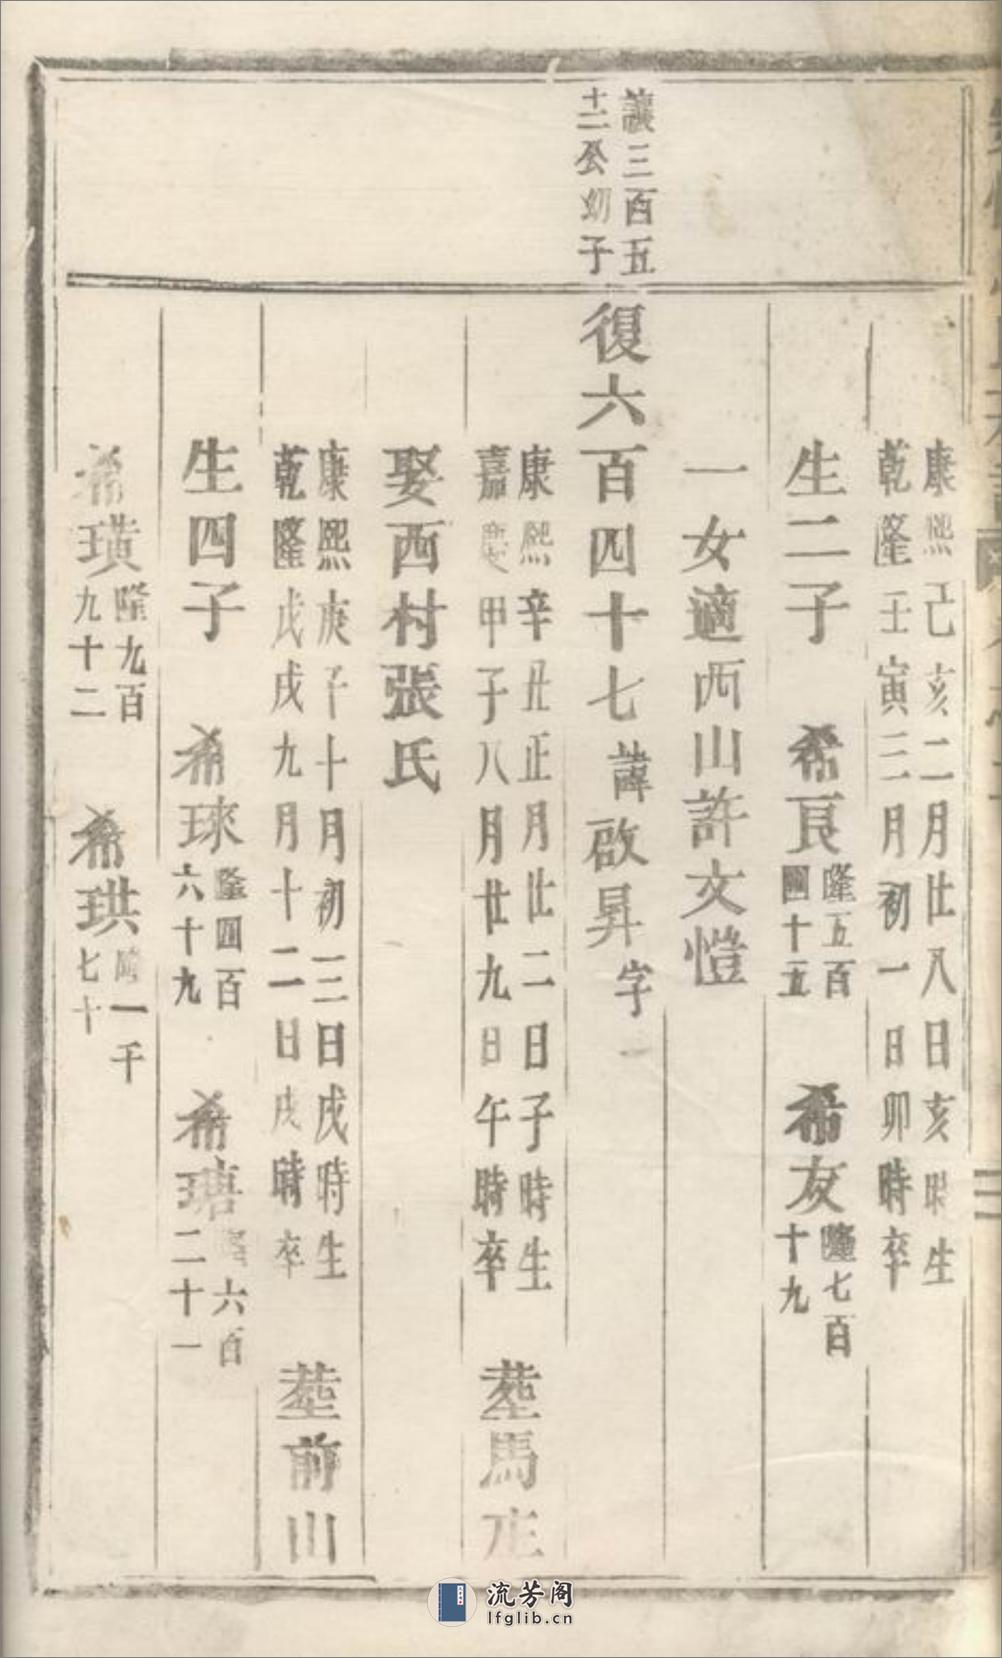 康熙己亥二月廿八日亥時生
乾隆壬寅三月初一日卯時卒
生二子 希良隆五百四十五 希友隆七百十九
一女適西山許文愷
議三百五
十二公幼子
復六百四十七諱啟昇字一
康熙辛丑正月廿二日子時生
嘉慶甲子八月廿九日午時卒 塟馬
娶西村張氏
康熙庚子十月初三日戌時生
乾隆戊戌九月十二日戌時卒 塟前山
生四子 希琜隆四百六十九 希瑭隆六百二十一
希璜隆九百九十二 希珙隆一千七十
流芳阁
lfglib.cn